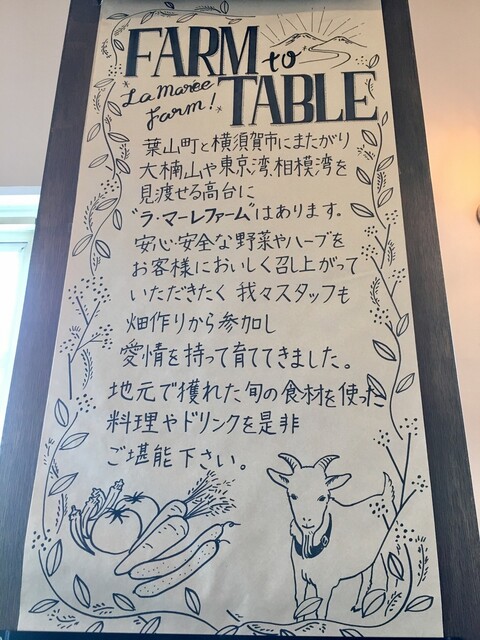 FARM to
La marée farm!
TABLE
葉山町と横須賀市にまたがり
大楠山や東京湾、相模湾を
見渡せる高台に
"ラ・マーレファーム"はあります。
安心・安全な野菜やハーブを
お客様においしく召し上がって
いただきたく 我々スタッフも
畑作りから参加し
愛情を持って育ててきました。
地元で獲れた旬の食材を使った
料理やドリンクを是非
ご堪能下さい。